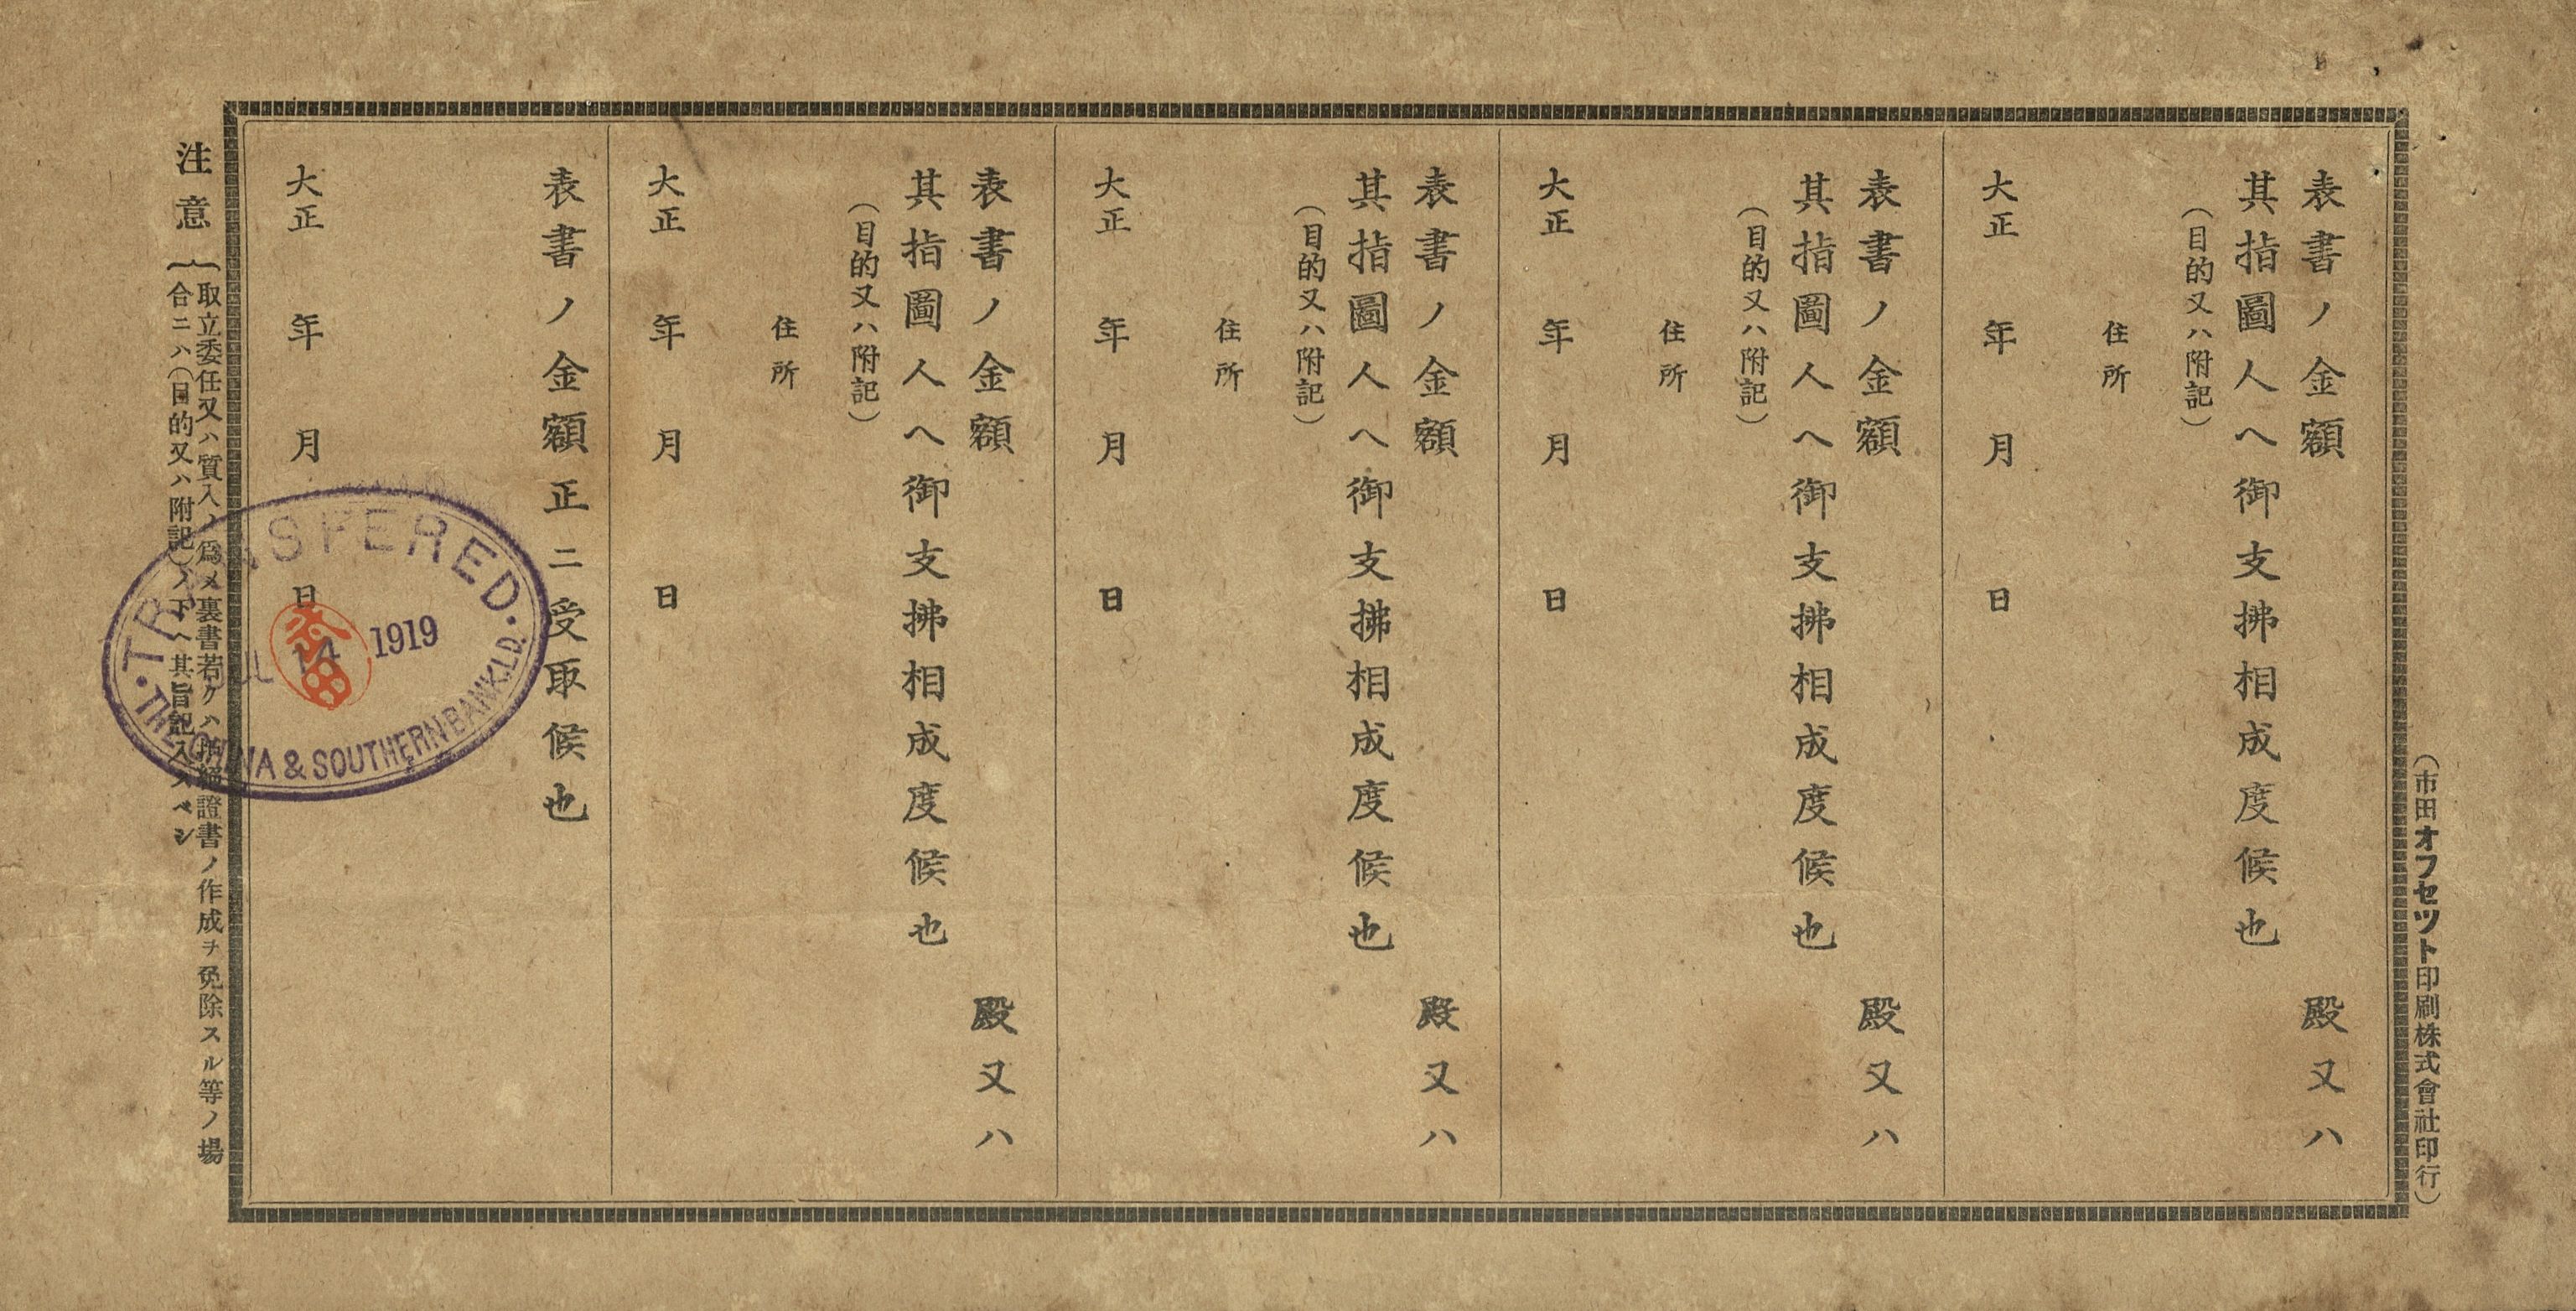 （市田オフセツト印刷株式會社印行）
表書ノ金額 殿又ハ
其指圖人ヘ御支拂相成度候也
（目的又ハ附記）
住所
大正 年 月 日
表書ノ金額 殿又ハ
其指圖人ヘ御支拂相成度候也
（目的又ハ附記）
住所
大正 年 月 日
表書ノ金額 殿又ハ
其指圖人ヘ御支拂相成度候也
（目的又ハ附記）
住所
大正 年 月 日
表書ノ金額 殿又ハ
其指圖人ヘ御支拂相成度候也
（目的又ハ附記）
住所
大正 年 月 日
表書ノ金額正ニ受取候也
大正 年 月 日
注意
取立委任又ハ質入ノ爲メ裏書若クハ拒絕證書ノ作成ヲ免除スル等ノ場
合ニハ（目的又ハ附記）ノ下ヘ其旨記入スベシ
TRANSFERED
JUL 14 1919
THE CHINA & SOUTHERN BANK LD.